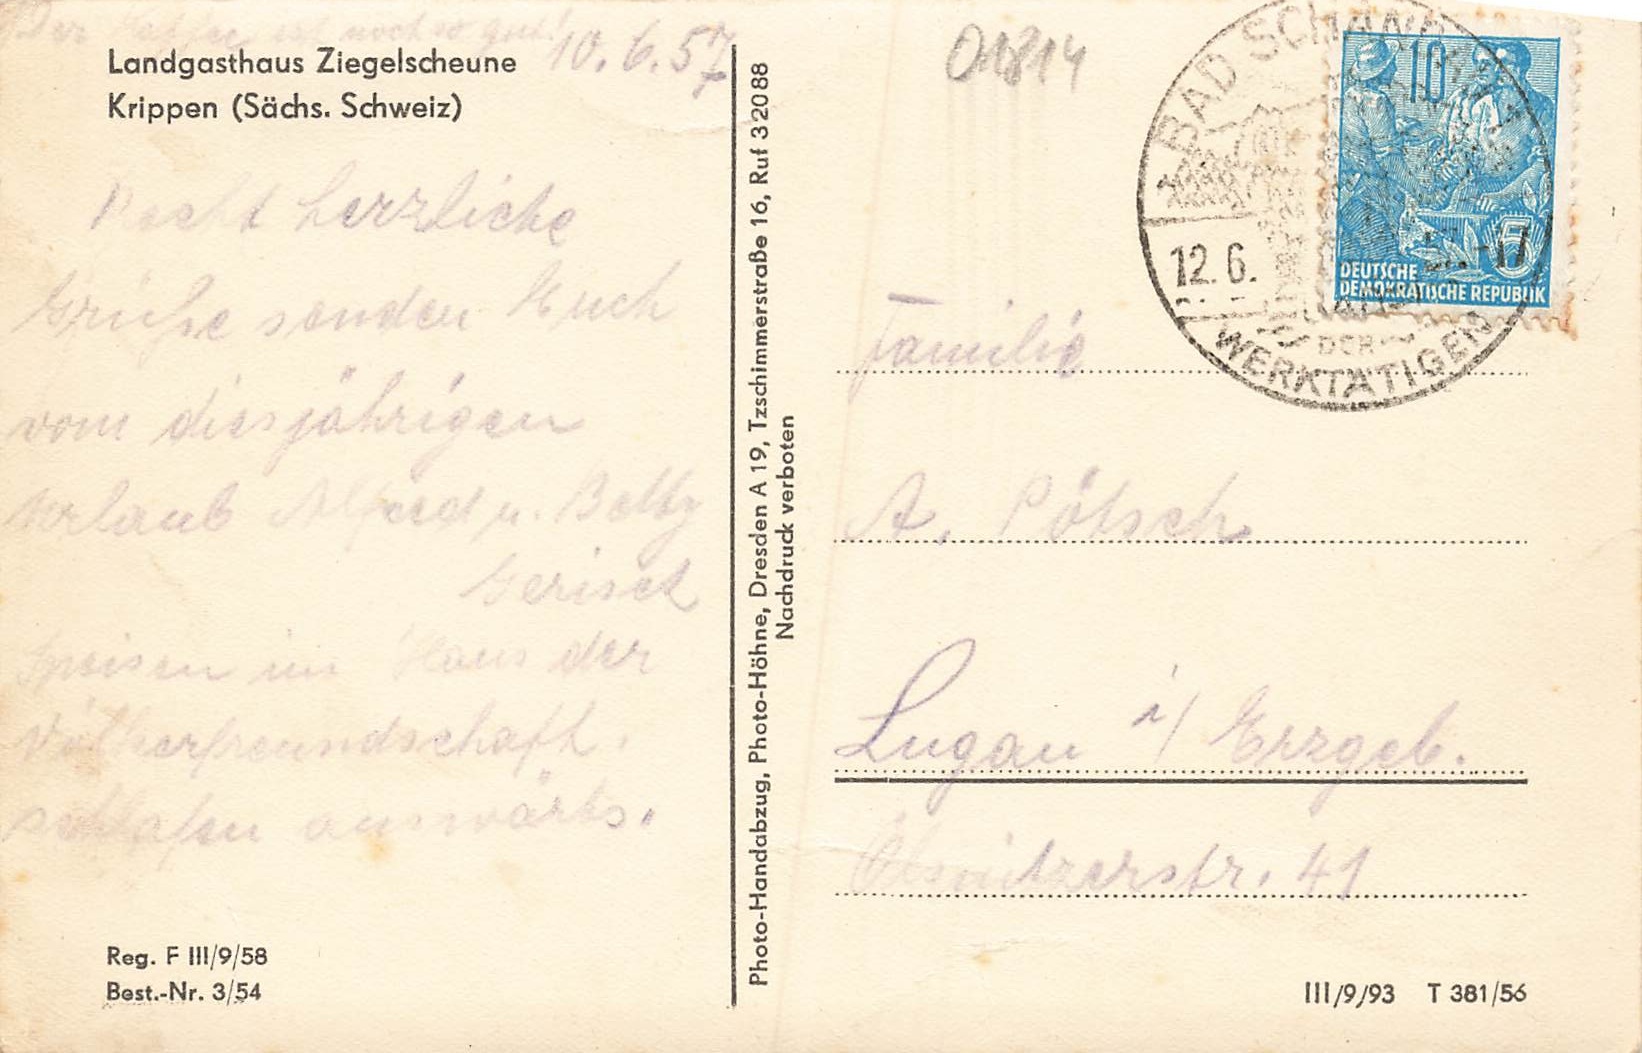 Der Kaffee ist noch so gut!
10.6.57
Landgasthaus Ziegelscheune
Krippen (Sächs. Schweiz)
Recht herzliche
Grüße senden Euch
vom diesjährigen
Urlaub Alfred u. Betty
Gerisch
Speisen im Haus der
Völkerfreundschaft.
schlafen auswärts.
Reg. F III/9/58
Best.-Nr. 3/54
Photo-Handabzug, Photo-Höhne, Dresden A 19, Tzschimmerstraße 16, Ruf 32088
Nachdruck verboten
01814
BAD SCHANDAU
12.6.57.-17
DER
WERKTÄTIGEN
10
5
DEUTSCHE
DEMOKRATISCHE REPUBLIK
Familie
A. Pötsch
Lugau i/ Erzgeb.
Oelsnitzerstr. 41
III/9/93 T 381/56